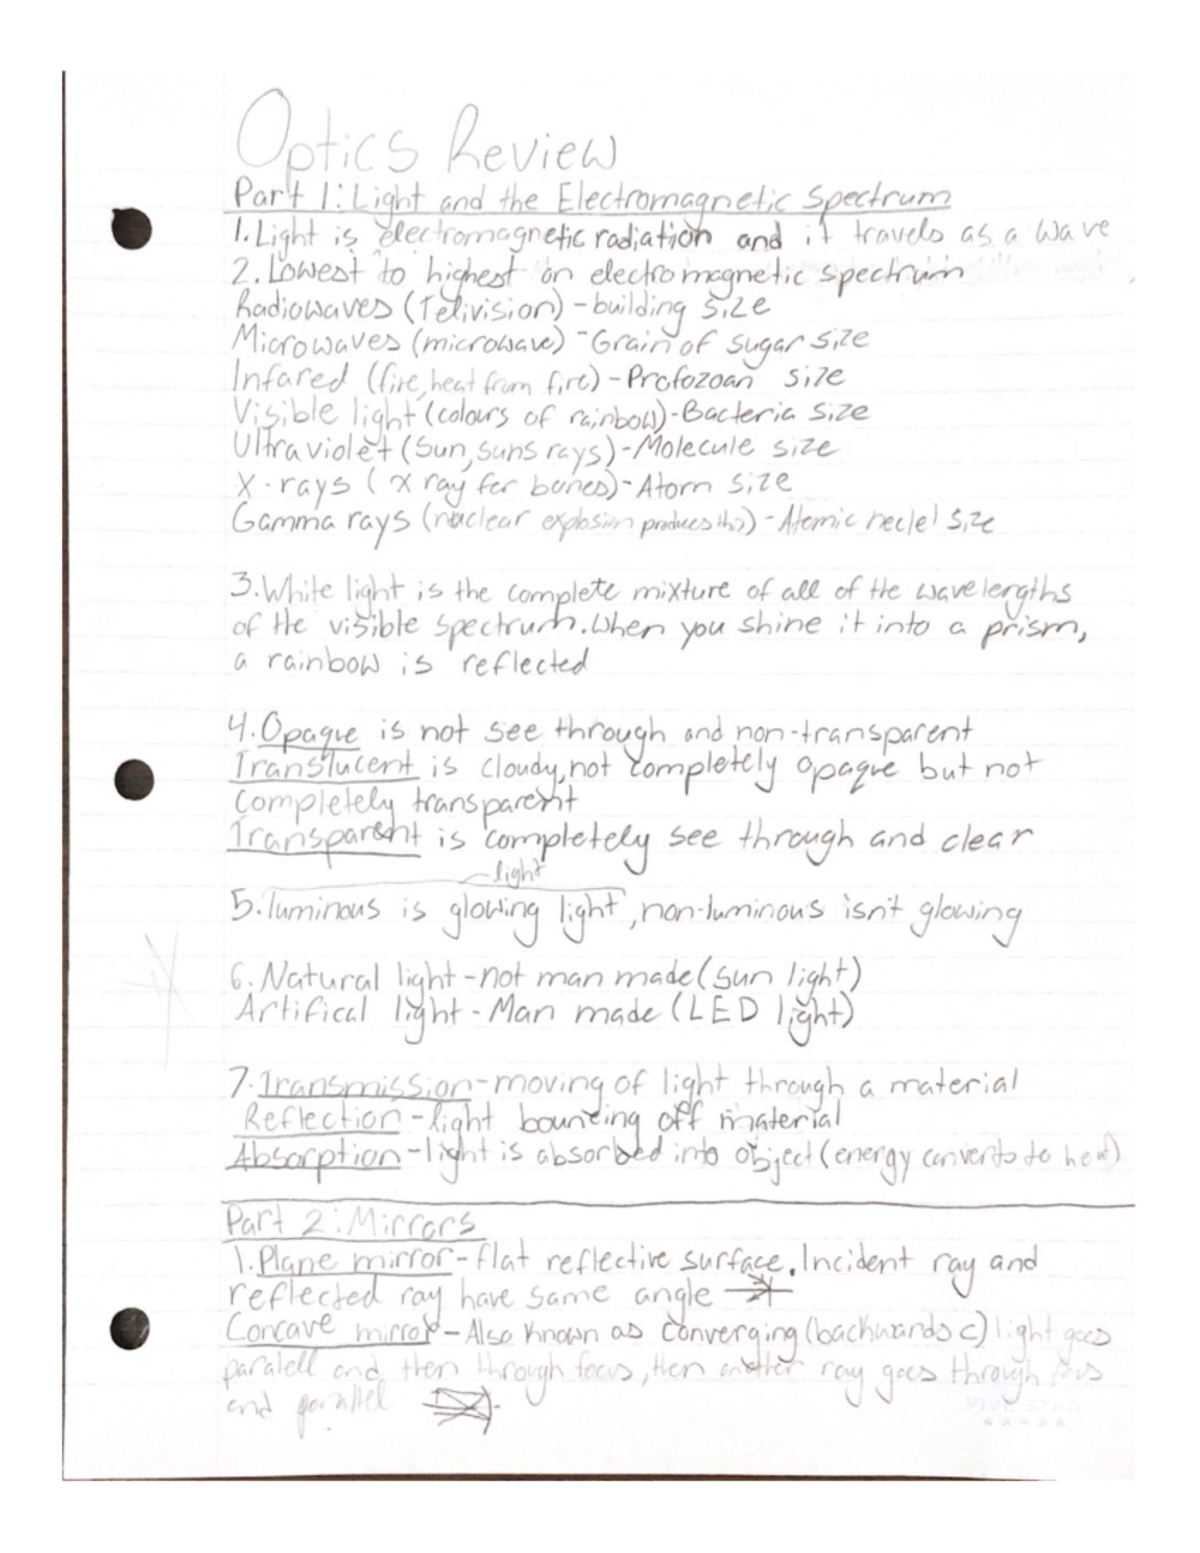 Optics Review
Part 1: Light and the Electromagnetic Spectrum
1. Light is electromagnetic radiation and it travels as a wave
2. Lowest to highest on electromagnetic spectrum
Radiowaves (Telivision) - building size
Microwaves (microwave) - Grain of sugar size
Infared (fire, heat from fire) - Protozoan size
Visible light (colours of rainbow) - Bacteria size
Ultraviolet (Sun, suns rays) - Molecule size
X-rays (x ray for bones) - Atom size
Gamma rays (nuclear explosion produces this) - Atomic neclei size
3. White light is the complete mixture of all of the wavelengths
of the visible spectrum. When you shine it into a prism,
a rainbow is reflected
4. Opaque is not see through and non-transparent
Translucent is cloudy, not completely opaque but not
completely transparent
Transparent is completely see through and clear
light
5. luminous is glowing light, non-luminous isn't glowing
6. Natural light - not man made (sun light)
Artifical light - Man made (LED light)
7. Transmission - moving of light through a material
Reflection - light bouncing off material
Absorption - light is absorbed into object (energy converts to heat)
Part 2: Mirrors
1. Plane mirror - flat reflective surface. Incident ray and
reflected ray have same angle
Concave mirror - Also known as converging (backwards c) light goes
paralell and then through focus, then another ray goes through focus
and parallel
FIVE STAR